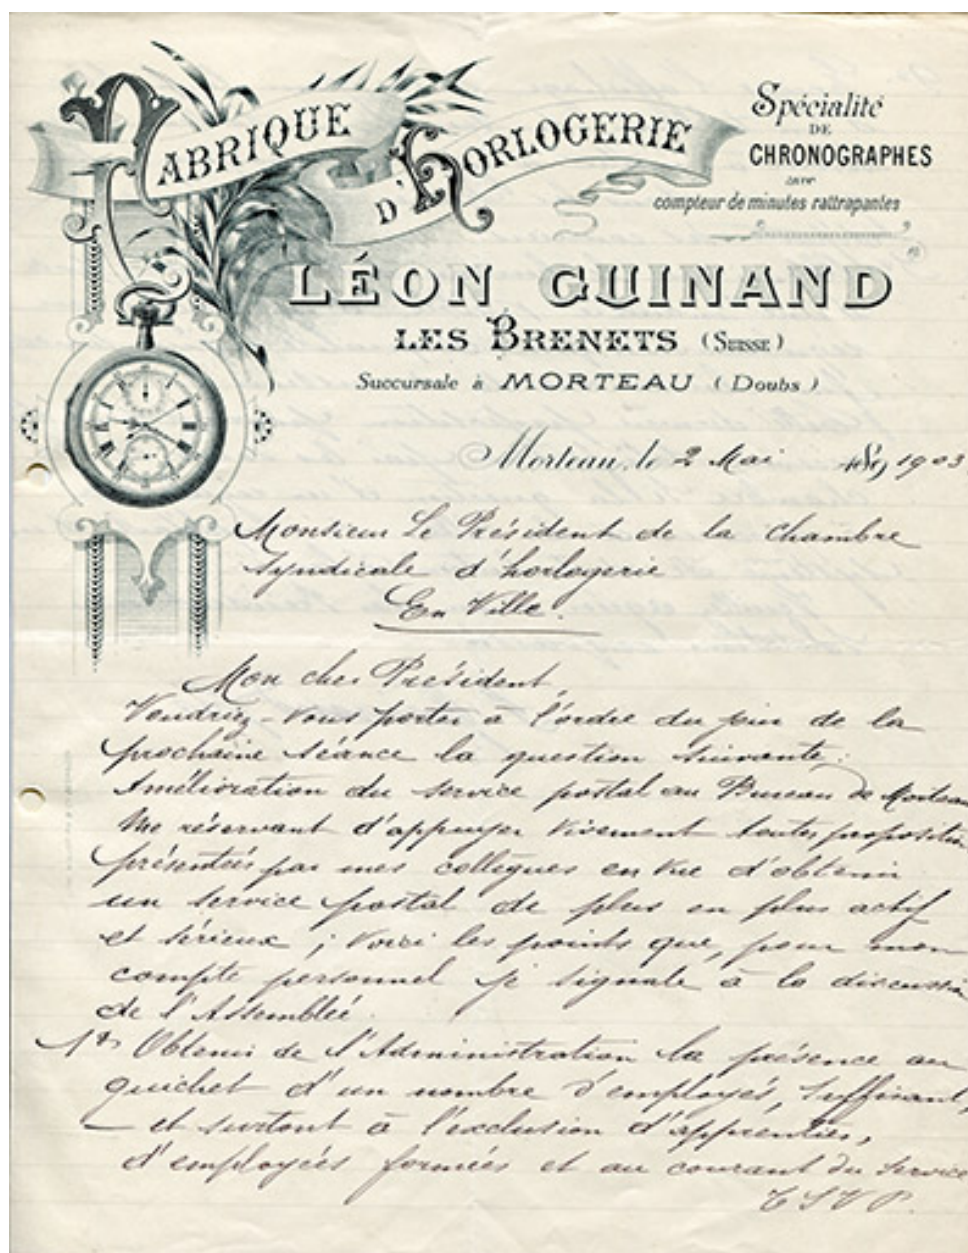 FABRIQUE
D'HORLOGERIE
Spécialité
DE
CHRONOGRAPHES
avec
compteur de minutes rattrapantes
LÉON GUINAND
LES BRENETS (SUISSE)
Succursale à MORTEAU (Doubs)
Morteau, le 2 Mai 189 1903
Monsieur Le Président de la Chambre
Syndicale d'horlogerie
En Ville.
Mon cher Président,
Voudriez-vous porter à l'ordre du jour de la
prochaine séance la question suivante:
Amélioration du service postal au Bureau de Morteau
Me réservant d'appuyer vivement toutes proposition
présentées par mes collègues en vue d'obtenir
un service postal de plus en plus actif
et sérieux; voici les points que, pour mon
compte personnel je signale à la discussion
de l'Assemblée.
Obtenir de l'Administration la présence au
guichet d'un nombre d'employés, suffisant,
et surtout à l'exclusion d'apprenties,
d'employées formées et au courant du service
TSVP.